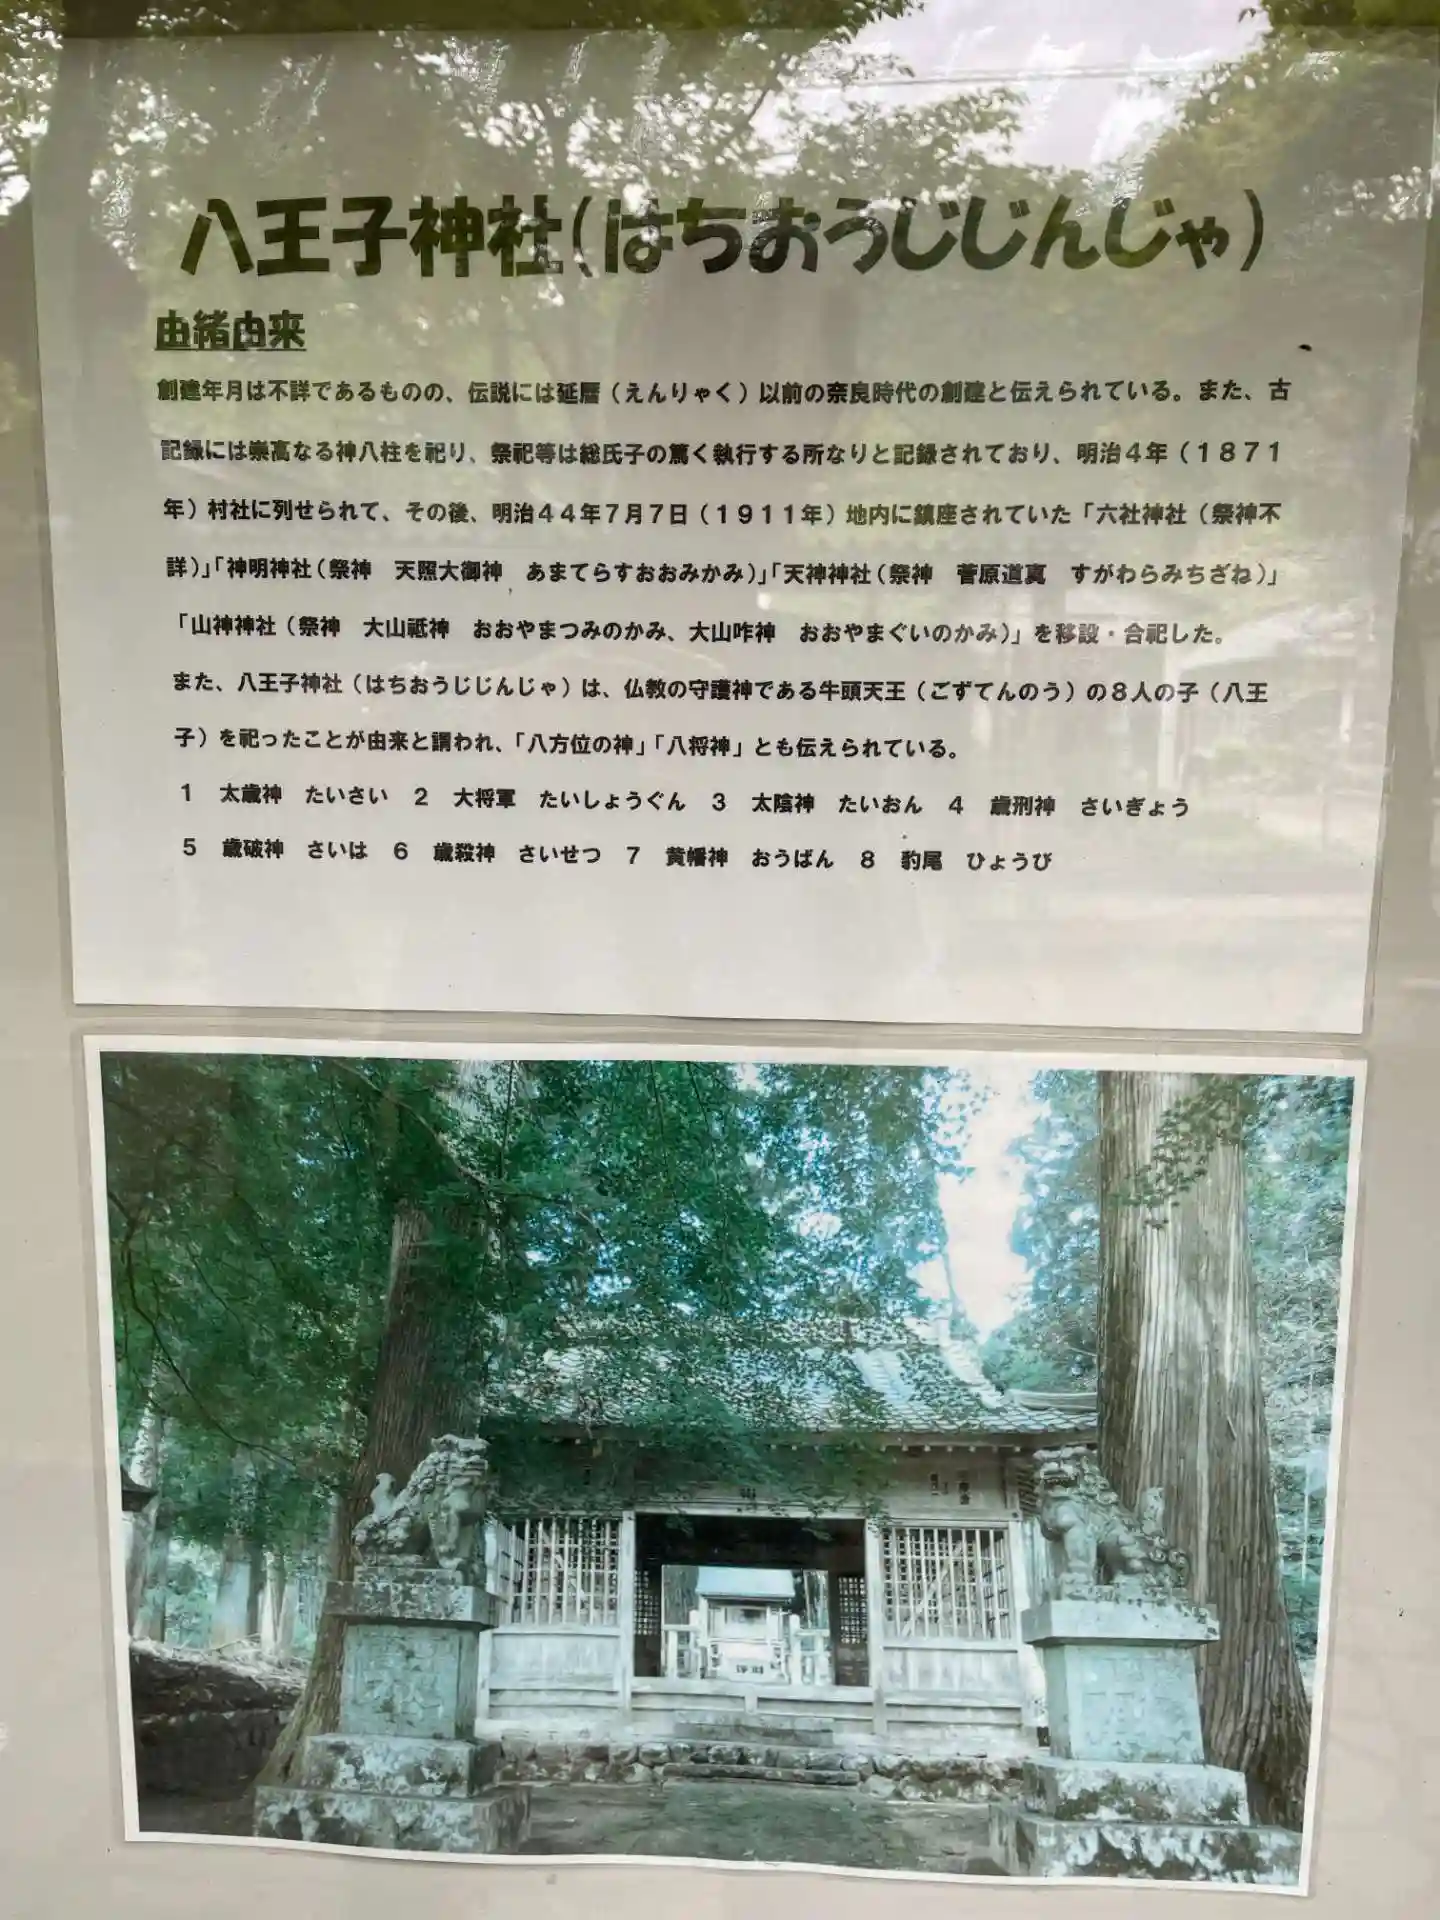 八王子神社(はちおうじじんじゃ)
由緒由来
創建年月は不詳であるものの、伝説には延暦（えんりゃく）以前の奈良時代の創建と伝えられている。また、古
記録には崇高なる神八柱を祀り、祭祀等は総氏子の篤く執行する所なりと記録されており、明治４年（１８７１
年）村社に列せられて、その後、明治４４年７月７日（１９１１年）地内に鎮座されていた「六社神社（祭神不
詳）」「神明神社（祭神　天照大御神　あまてらすおおみかみ）」「天神神社（祭神　菅原道真　すがわらみちざね）」
「山神神社（祭神　大山祗神　おおやまつみのかみ、大山咋神　おおやまぐいのかみ）」を移設・合祀した。
また、八王子神社（はちおうじじんじゃ）は、仏教の守護神である牛頭天王（ごずてんのう）の８人の子（八王
子）を祀ったことが由来と謂われ、「八方位の神」「八将神」とも伝えられている。
１　太歳神　たいさい　２　大将軍　たいしょうぐん　３　太陰神　たいおん　４　歳刑神　さいぎょう
５　歳破神　さいは　６　歳殺神　さいせつ　７　黄幡神　おうばん　８　豹尾　ひょうび